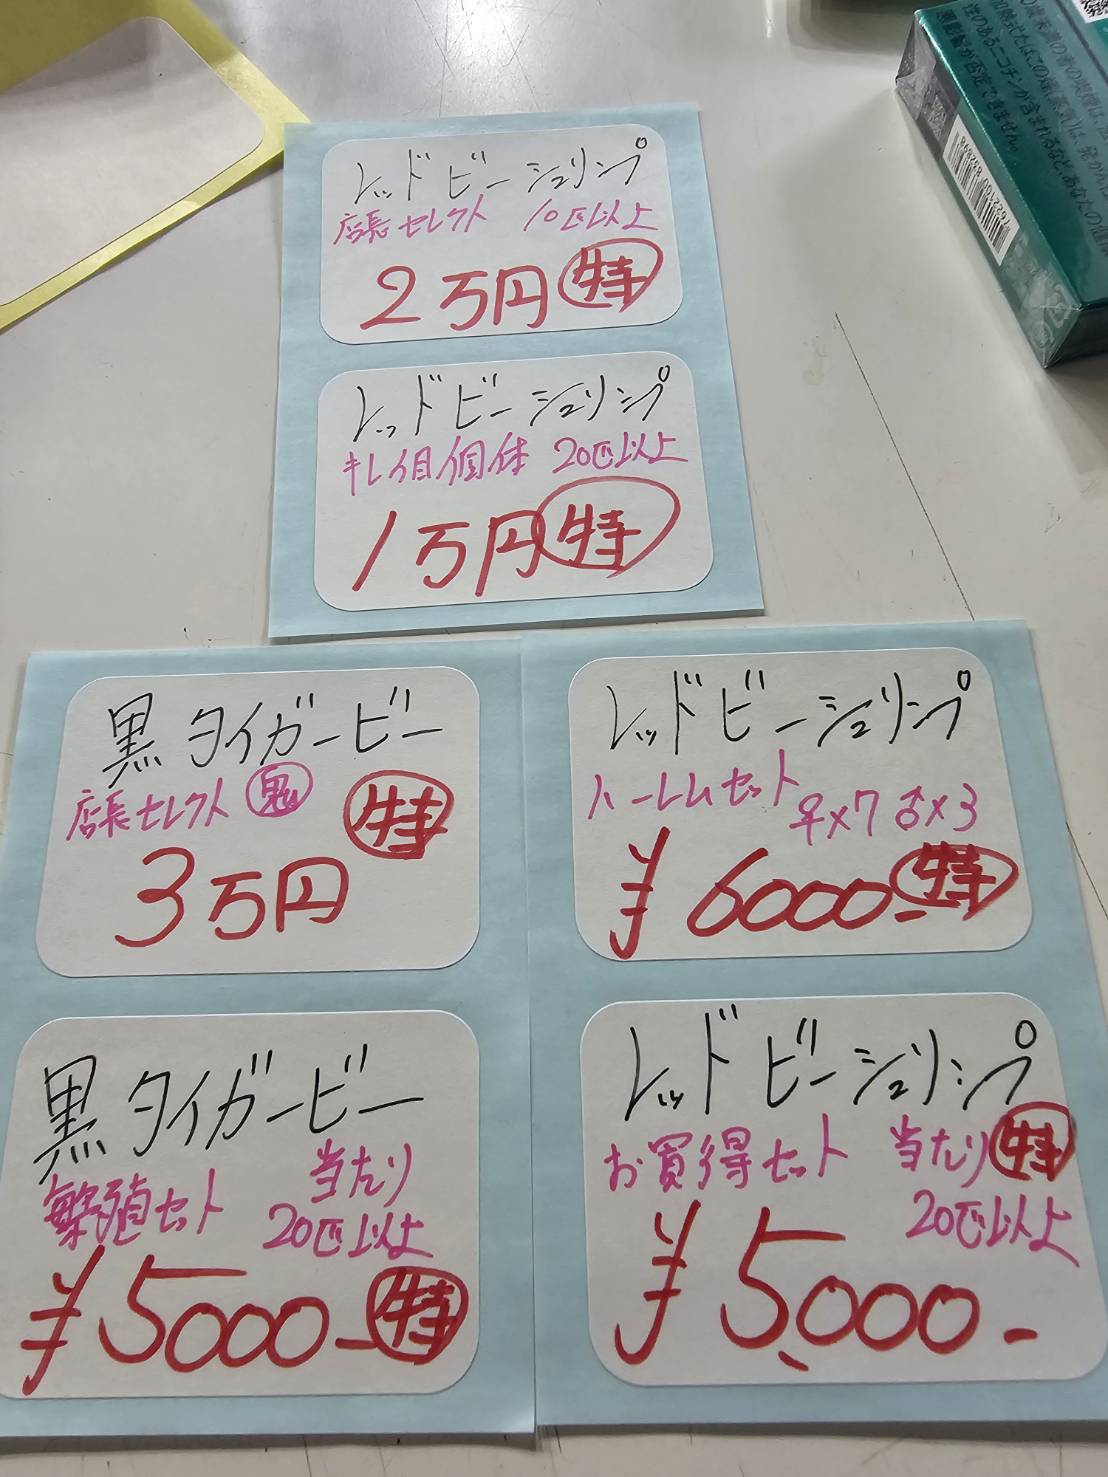 レッドビーシュリンプ
店長セレクト 10匹以上
2万円 特
レッドビーシュリンプ
キレイ目個体 20匹以上
1万円 特
黒タイガービー
店長セレクト 鬼 特
3万円
黒タイガービー
繁殖セット 当たり
20匹以上
¥5000- 特
レッドビーシュリンプ
ハーレムセット ♀×7 ♂×3
¥6000- 特
レッドビーシュリンプ
お買得セット 当たり 特
20匹以上
¥5,000-